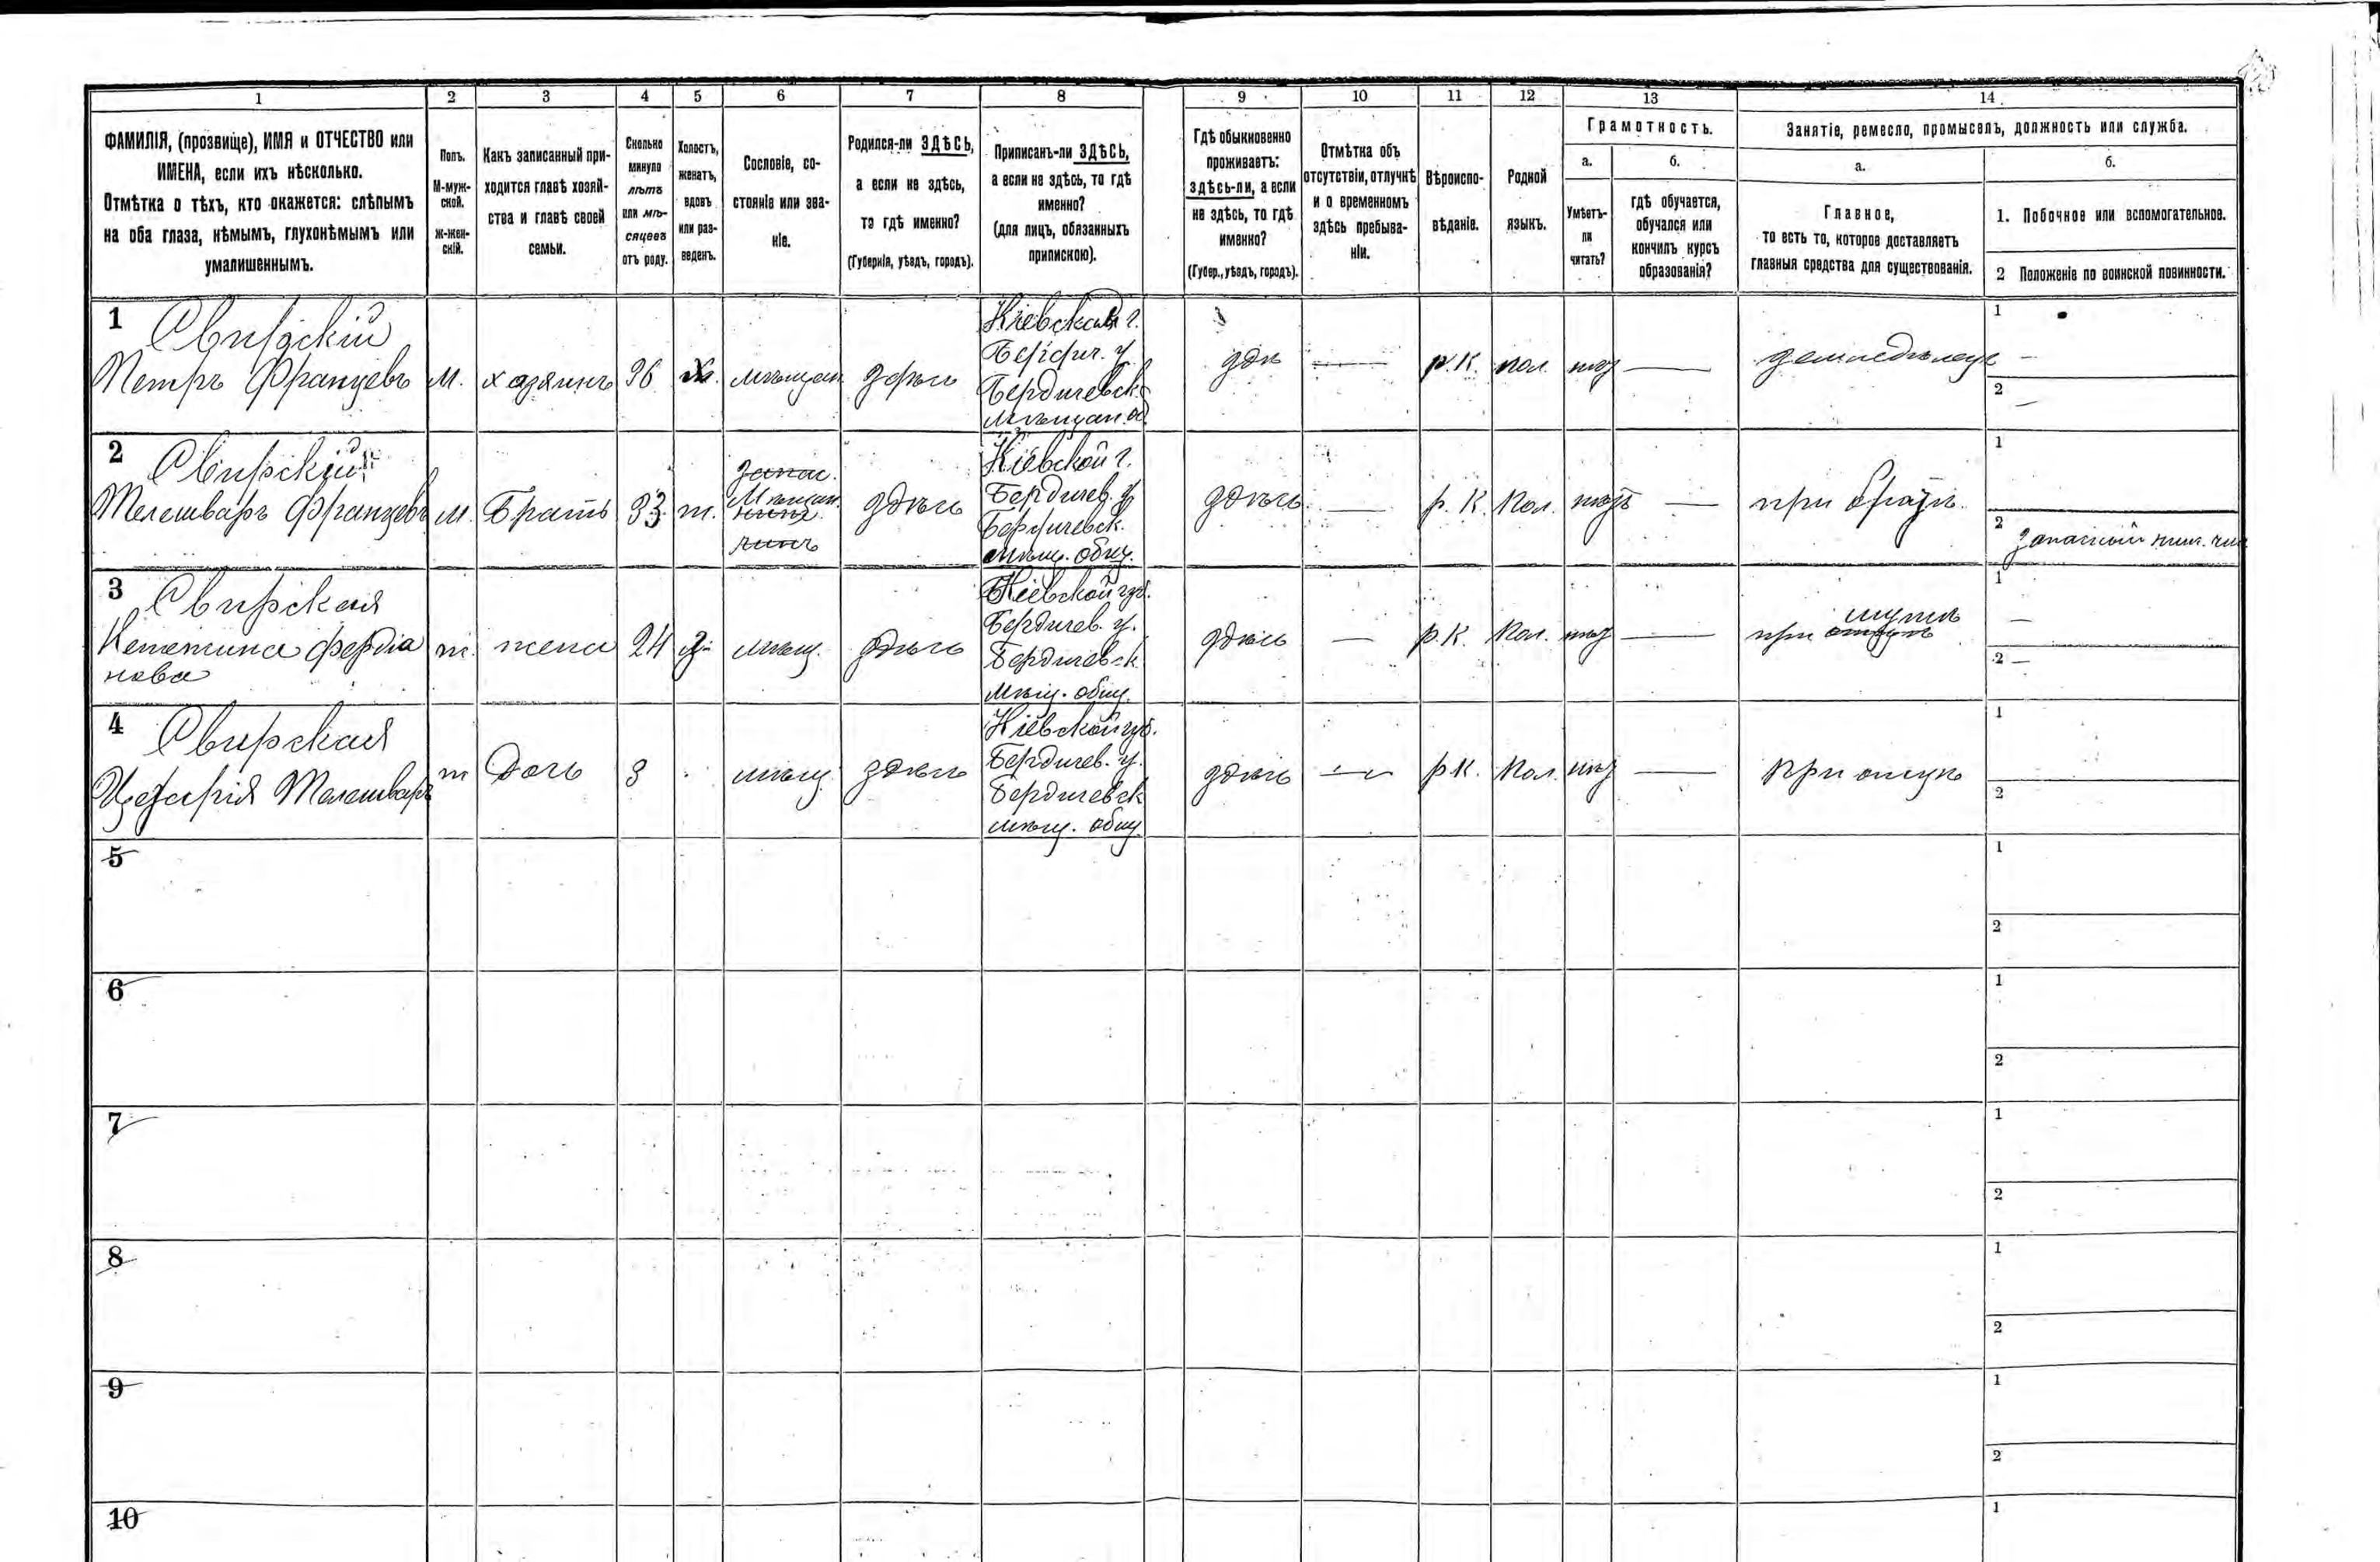 1 2 3 4 5 6 7 8 9 10 11 12 13 14
ФАМИЛІЯ, (прозвище), ИМЯ и ОТЧЕСТВО или
ИМЕНА, если ихъ нѣсколько.
Отмѣтка о тѣхъ, кто окажется: слѣпымъ
на оба глаза, нѣмымъ, глухонѣмымъ или
умалишеннымъ.
Полъ.
М-муж-
ской.
Ж-жен-
скій.
Какъ записанный при-
ходится главѣ хозяй-
ства и главѣ своей
семьи.
Сколько
минуло
лѣтъ
или мѣ-
сяцевъ
отъ роду.
Холостъ,
женатъ,
вдовъ
или раз-
веденъ.
Сословіе, со-
стояніе или зва-
ніе.
Родился-ли ЗДѢСЬ,
а если не здѣсь,
то гдѣ именно?
(Губернія, уѣздъ, городъ).
Приписанъ-ли ЗДѢСЬ,
а если не здѣсь, то гдѣ
именно?
(для лицъ, обязанныхъ
припискою).
Гдѣ обыкновенно
проживаетъ:
здѣсь-ли, а если
не здѣсь, то гдѣ
именно?
(Губер., уѣздъ, городъ).
Отмѣтка объ
отсутствіи, отлучкѣ
и о временномъ
здѣсь пребыва-
ніи.
Вѣроиспо-
вѣданіе.
Родной
языкъ.
Грамотность.
а.
Умѣетъ-
ли
читать?
б.
гдѣ обучается,
обучался или
кончилъ курсъ
образованія?
Занятіе, ремесло, промыселъ, должность или служба.
а.
Главное,
то есть то, которое доставляетъ
главныя средства для существованія.
б.
1. Побочное или вспомогательное.
2 Положеніе по воинской повинности.
1
Свирскій
Петръ Францевъ
М.
хозяинъ
36
х.
мѣщан
здѣсь
Кіевской г.
Бердич. у.
Бердичевск.
мѣщан. об
здѣ
—
р. К.
пол.
—
земледѣлецъ
1 —
2 —
2
Свирскій
Францевъ
М.
Братъ
33
ж.
запас.
Мѣщан
чинъ
здѣсь
Кіевской г.
Бердичев. у.
Бердичевск.
мѣщ. общ.
здѣсь
—
р. К.
Пол.
—
при братѣ.
1
2 Запасной ниж. чин
3
Свирская
ж.
жена
24
з
мѣщ.
здѣсь
Кіевской губ.
Бердичев. у.
Бердичевск
мѣщ. общ.
здѣсь
—
р. К.
Пол.
—
при мужѣ
1 —
2 —
4
Свирская
ж
Дочь
3
мѣщ.
здѣсь
Кіевской губ.
Бердичев. у.
Бердичевск
мѣщ. общ
здѣсь
—
р К.
Пол.
—
при отцѣ
1
2
5
1
2
6
1
2
7
1
2
8
1
2
9
1
2
10
1